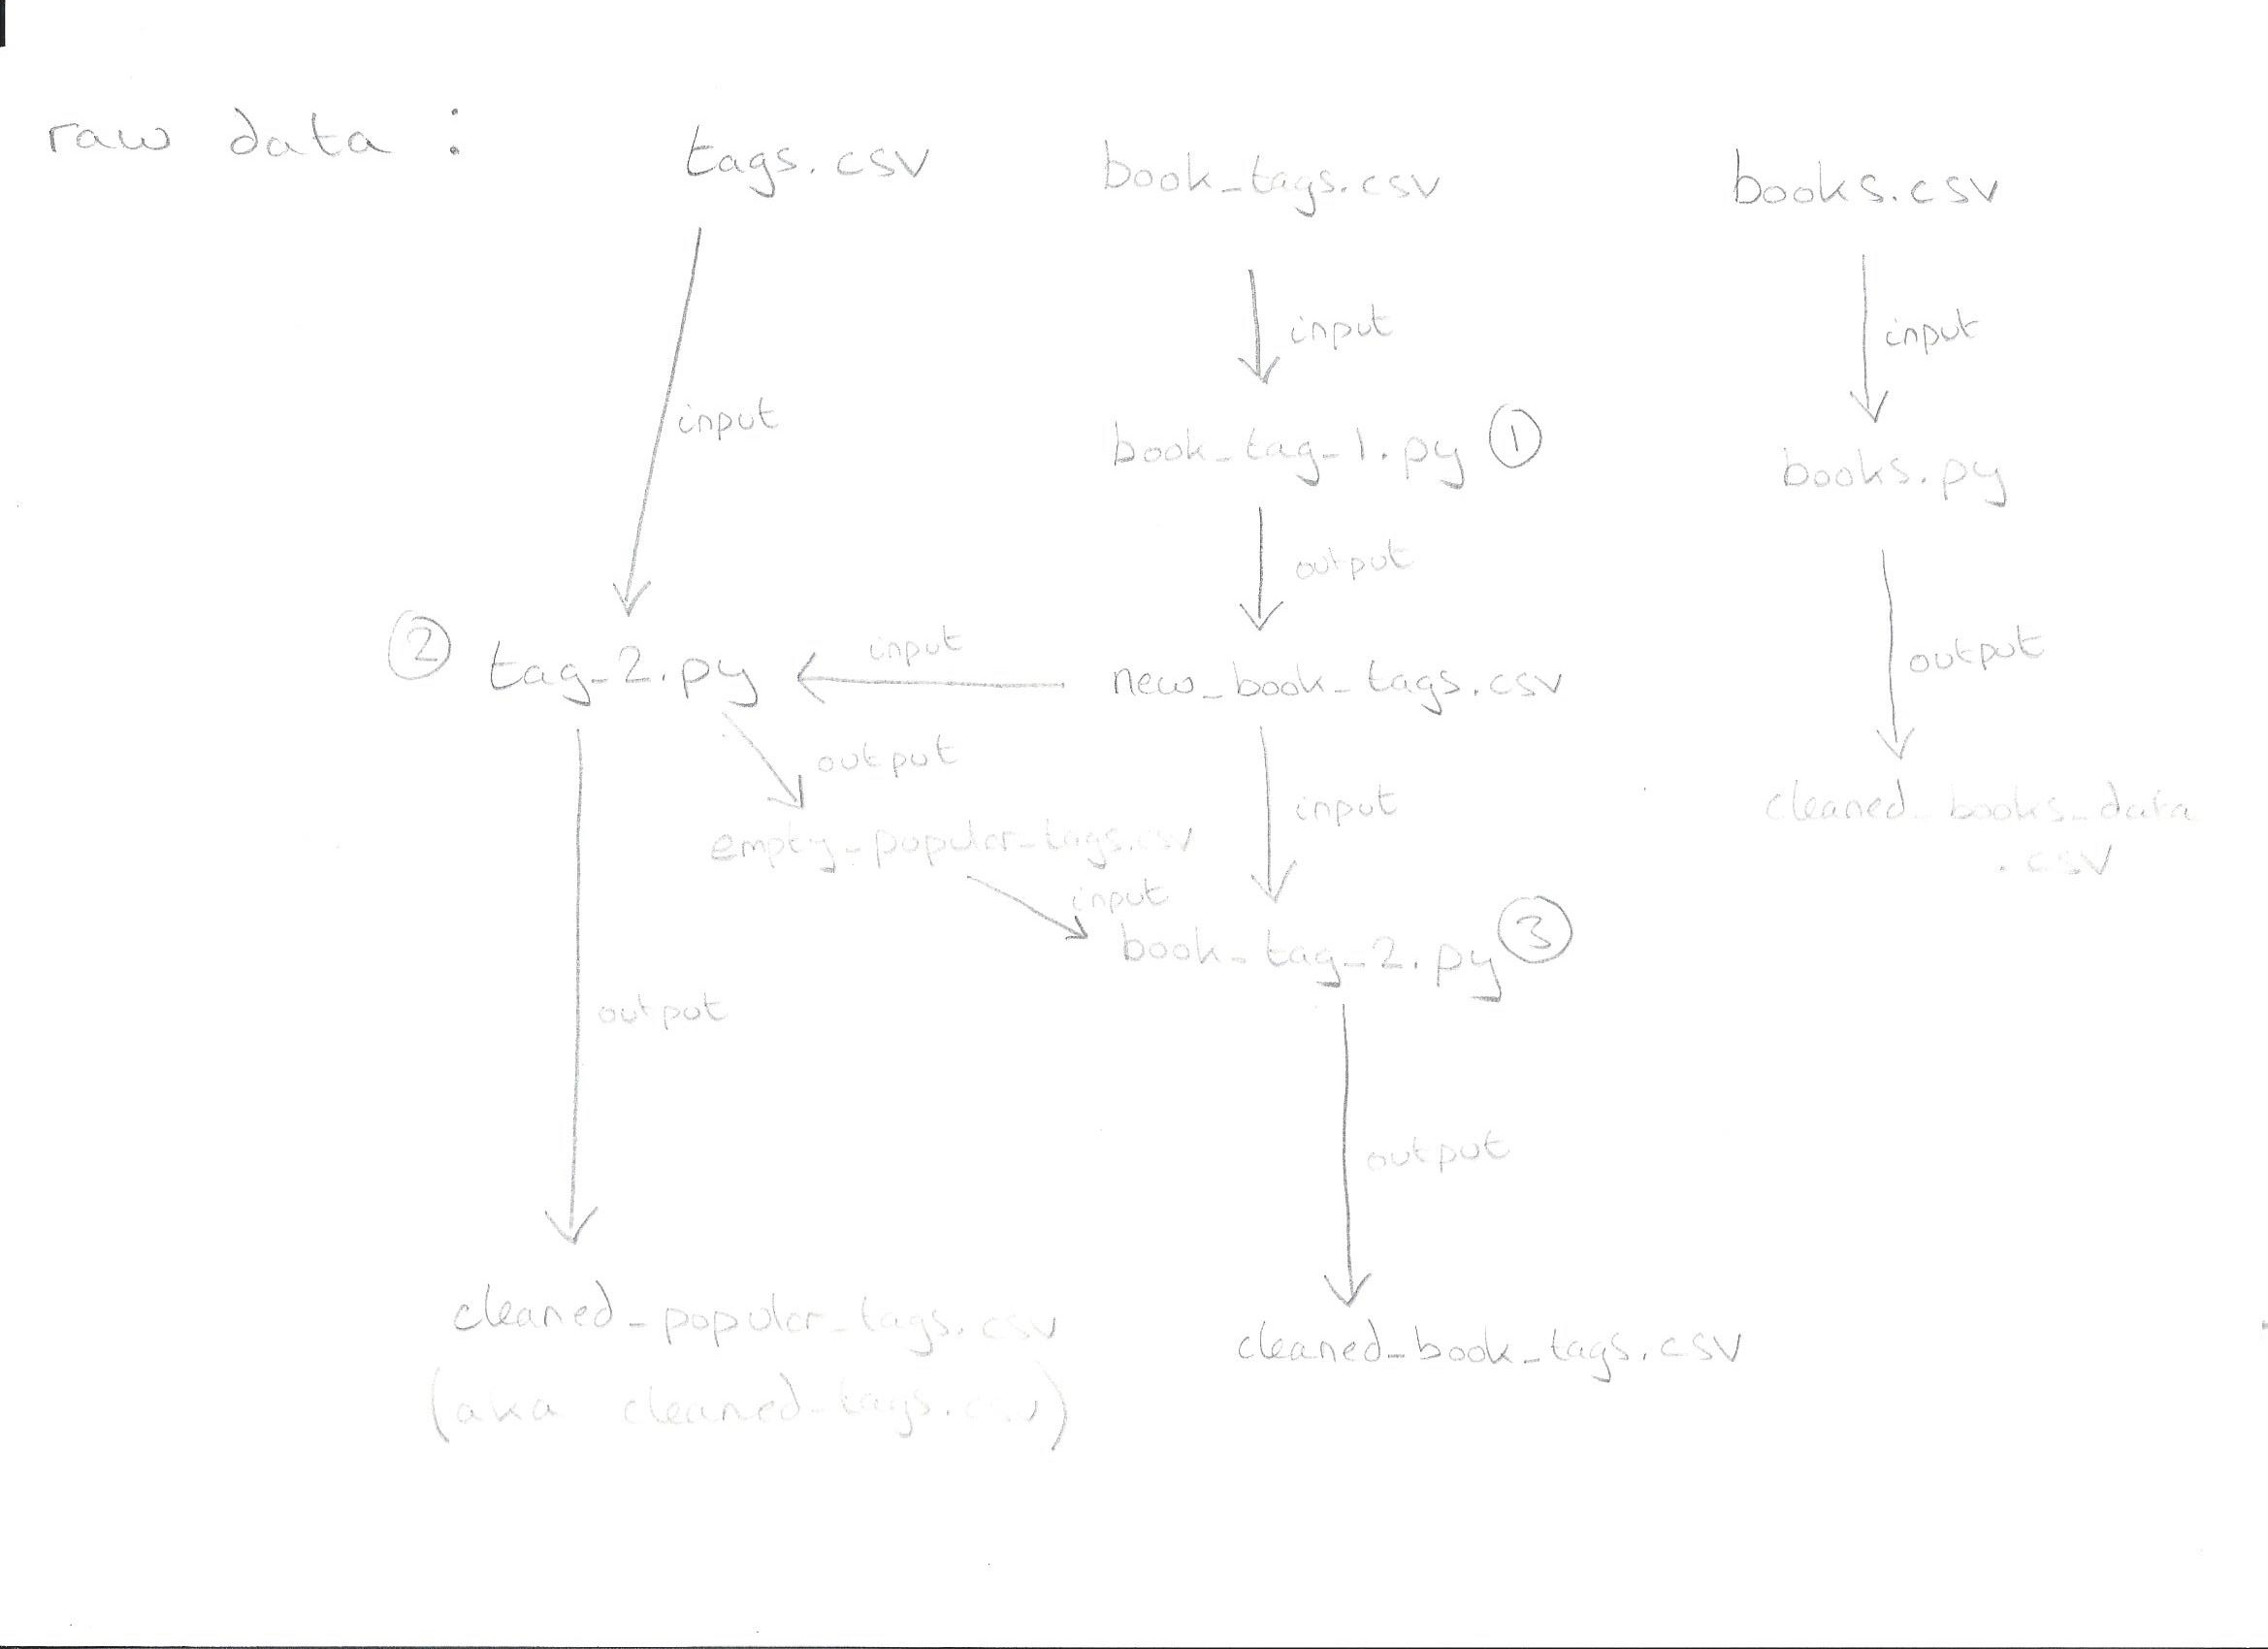 raw data :
tags.csv
book_tags.csv
books.csv
input
input
input
book_tag_1.py ①
books.py
output
② tag_2.py
input
new_book_tags.csv
output
output
input
empty_popular_tags.csv
cleaned_books_data
.csv
input
book_tag_2.py ③
output
output
cleaned_popular_tags.csv
(aka cleaned_tags.csv)
cleaned_book_tags.csv